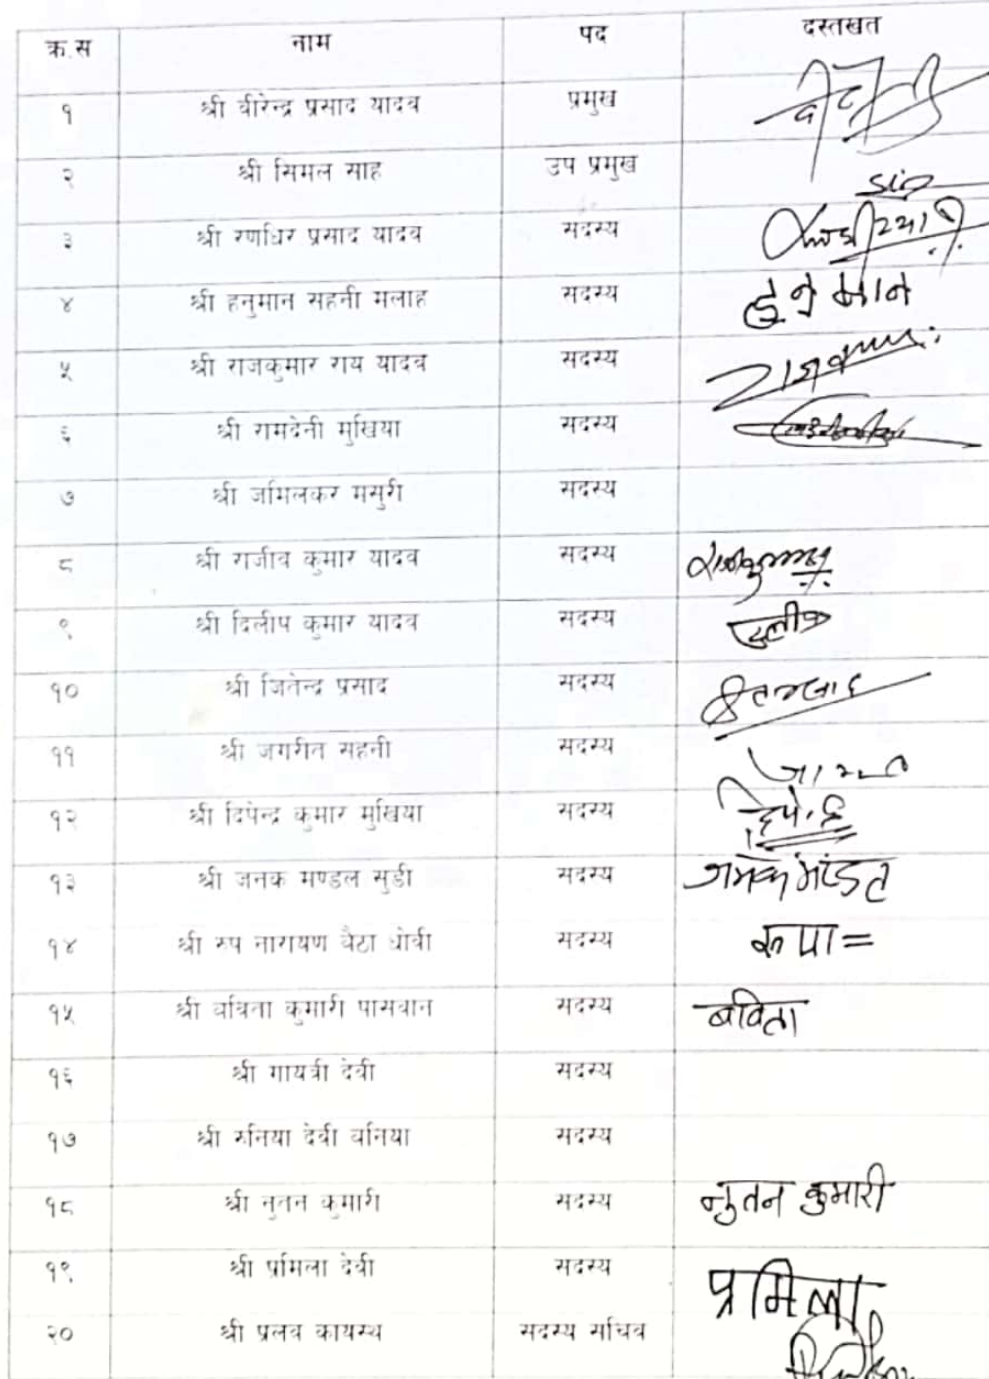 क्र.स नाम पद दस्तखत
१ श्री वीरेन्द्र प्रसाद यादव प्रमुख
२ श्री सिमल साह उप प्रमुख
३ श्री रणधिर प्रसाद यादव सदस्य
४ श्री हनुमान सहनी मलाह सदस्य हनुमान
५ श्री राजकुमार राय यादव सदस्य
६ श्री रामदेनी मुखिया सदस्य
७ श्री जमिलकर मसुरी सदस्य
८ श्री राजीव कुमार यादव सदस्य
९ श्री दिलीप कुमार यादव सदस्य
१० श्री जितेन्द्र प्रसाद सदस्य
११ श्री जगरीत सहनी सदस्य
१२ श्री दिपेन्द्र कुमार मुखिया सदस्य
१३ श्री जनक मण्डल सुडी सदस्य जनक मण्डल
१४ श्री रुप नारायण बैठा धोवी सदस्य
१५ श्री वविता कुमारी पासवान सदस्य बविता
१६ श्री गायत्री देवी सदस्य
१७ श्री रुनिया देवी वनिया सदस्य
१८ श्री नुतन कुमारी सदस्य नुतन कुमारी
१९ श्री प्रमिला देवी सदस्य प्रमिला
२० श्री प्रलव कायस्थ सदस्य सचिव